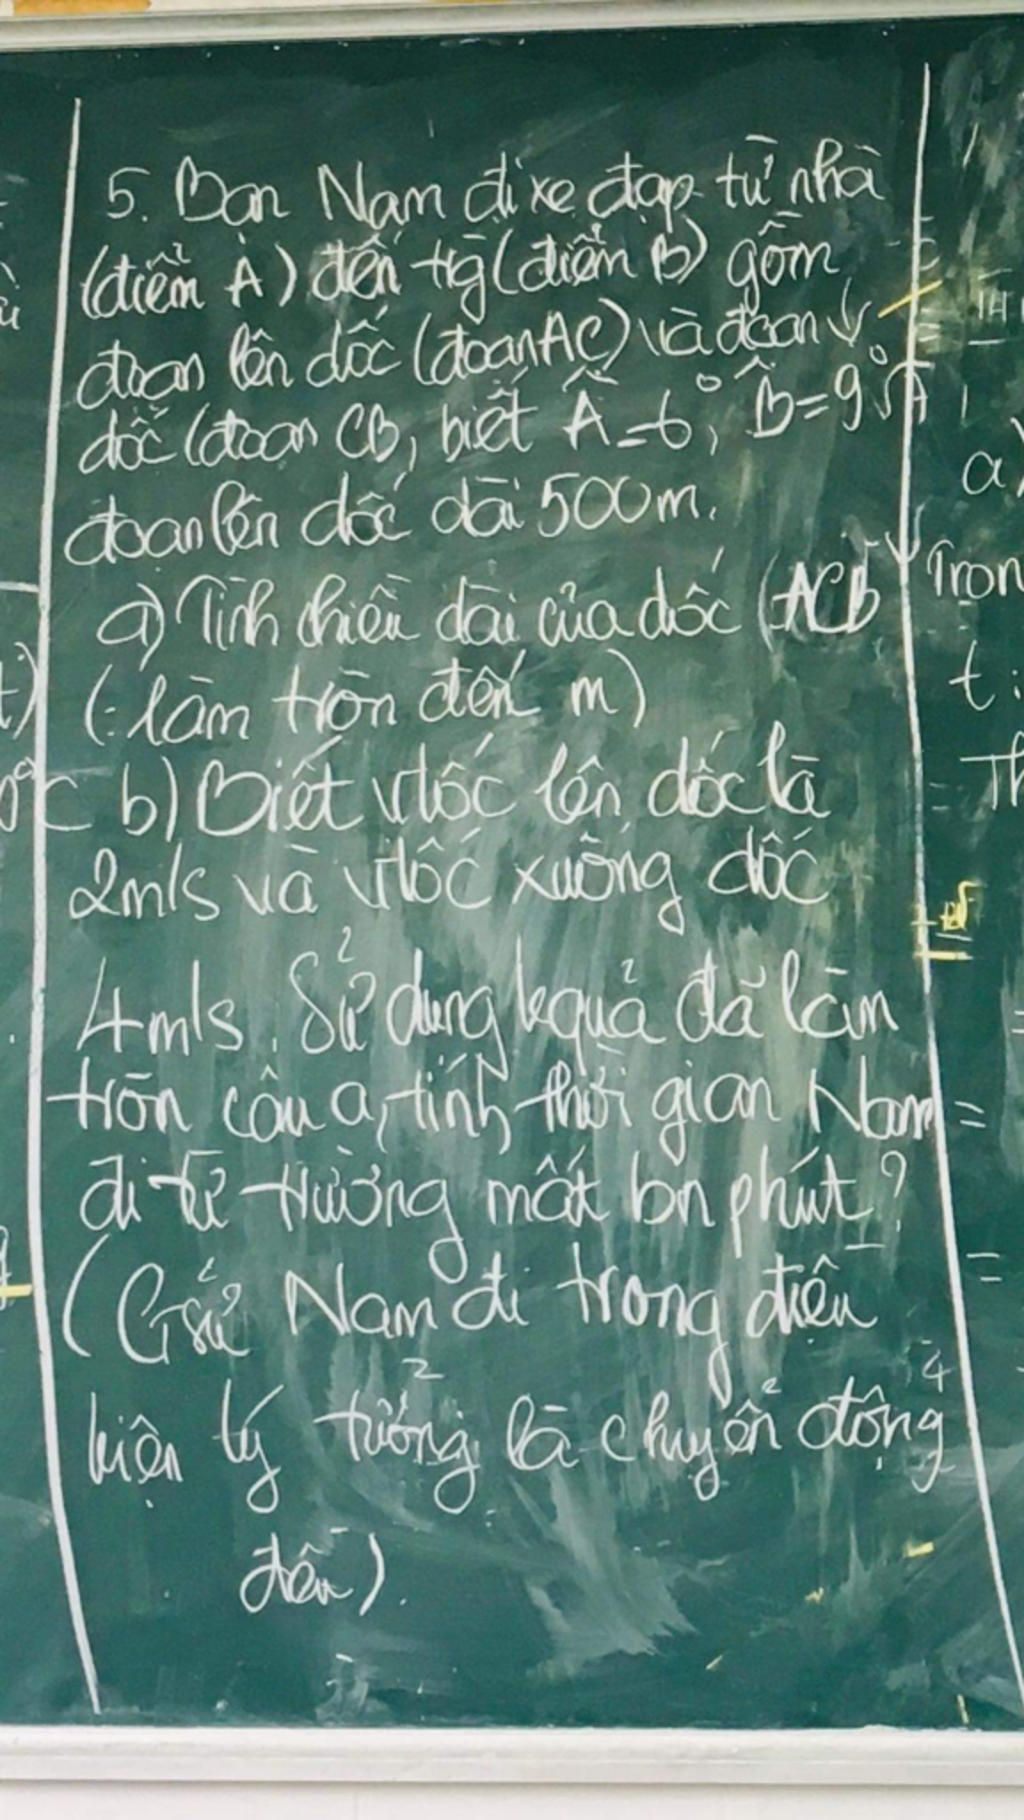 5. Bạn Nam đi xe đạp từ nhà
(điểm A) đến trg (điểm B) gồm
đoạn lên dốc (đoạn AC) và đoạn ↓
dốc (đoạn CB, biết Â = 6°, B̂ = 9°
đoạn lên dốc dài 500m.
a) Tính chiều dài của dốc (ACB
(làm tròn đến m)
b) Biết vtốc lên dốc là
2m/s và vtốc xuống dốc
4m/s. Sử dụng kquả đã làm
tròn câu a, tính thời gian Nam
đi từ trường mất bn phút?
(Gsử Nam đi trong điều
kiện lý tưởng là chuyển động
đều).
a)
Tron
t:
Th